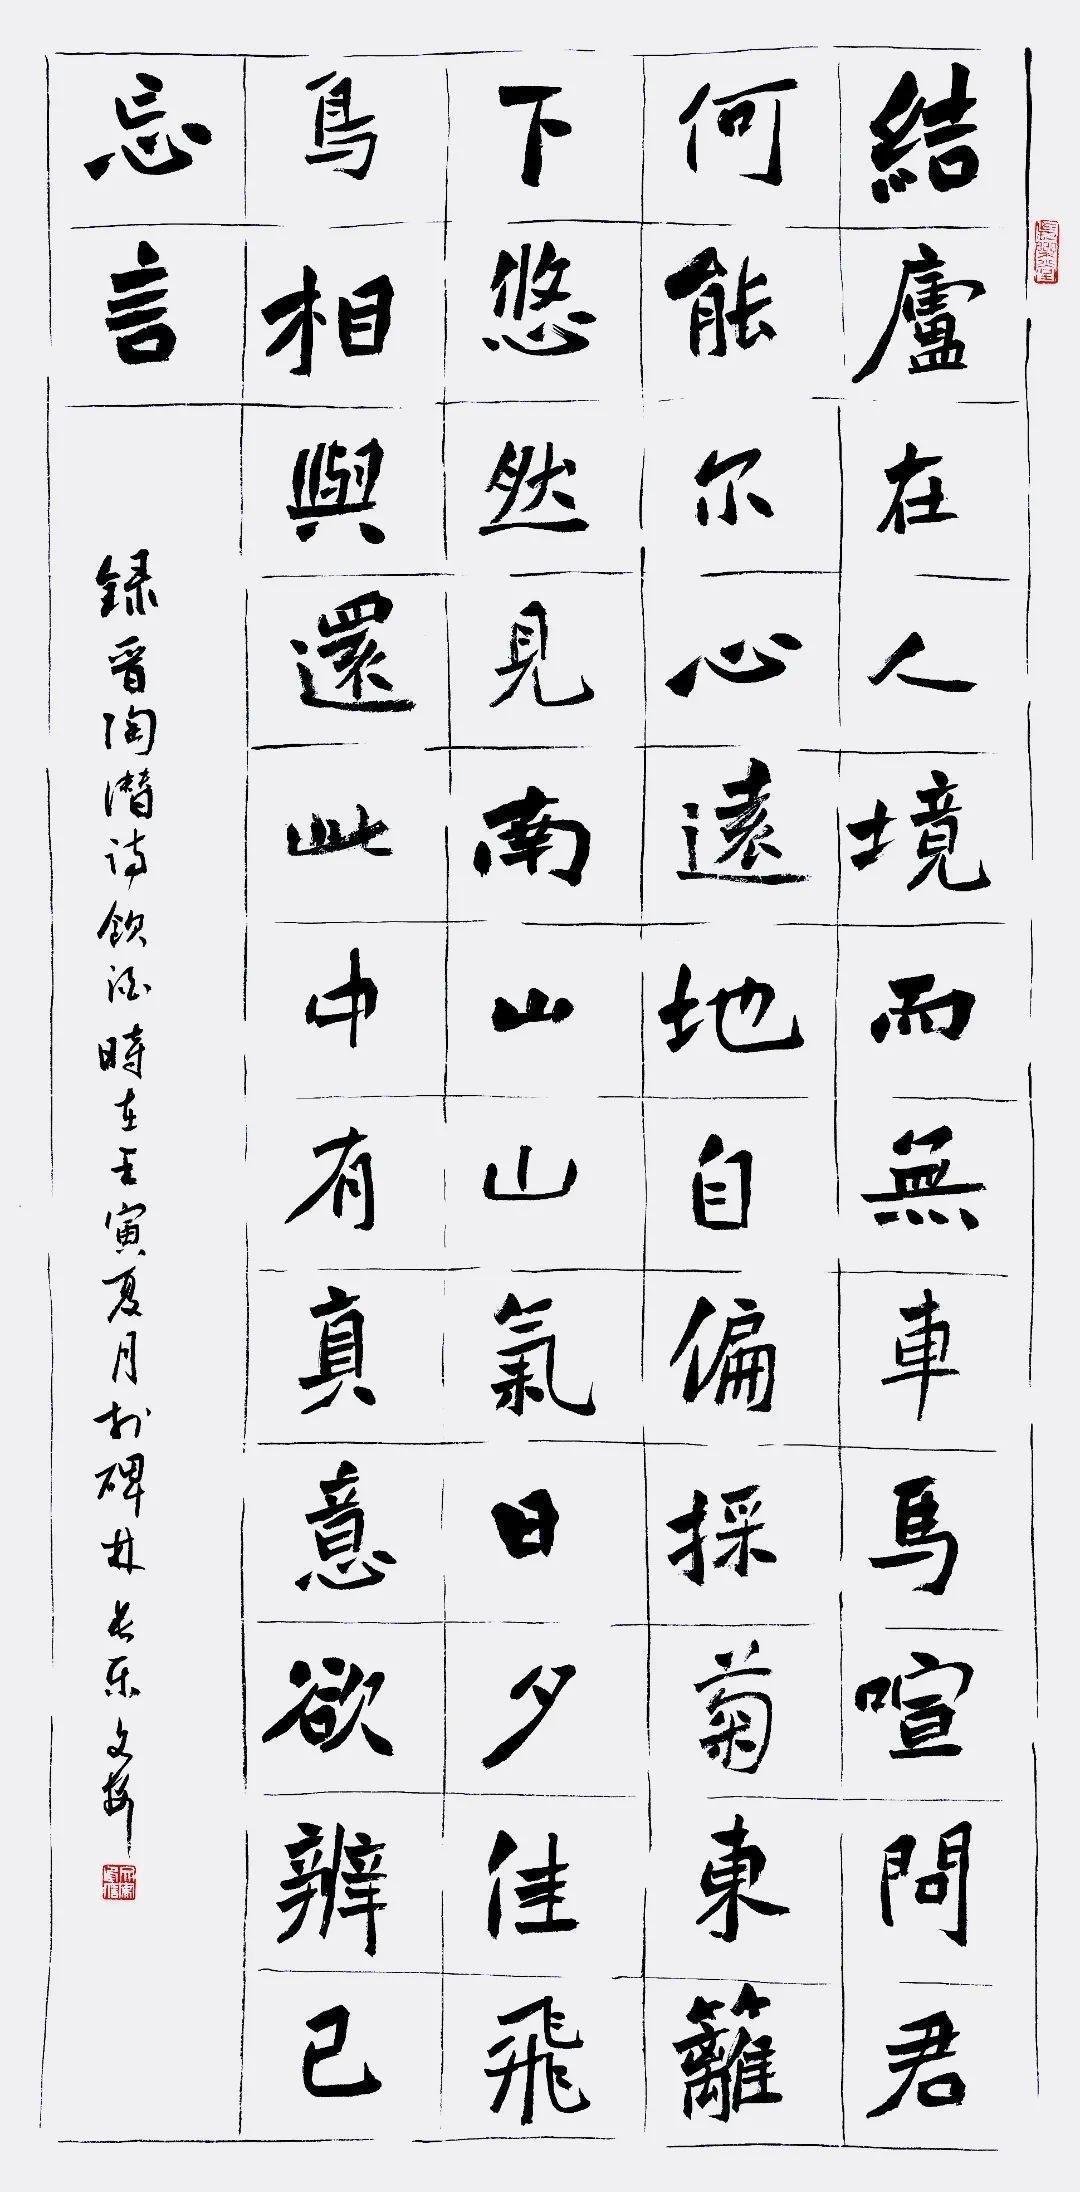 結廬在人境而無車馬喧問君
何能尔心遠地自偏採菊東籬
下悠然見南山山氣日夕佳飛
鳥相與還此中有真意欲辨已
忘言
録晋陶潛诗飲酒時在壬寅夏月扵碑林长乐文